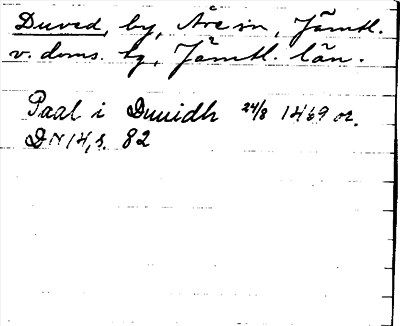 Duved, by, Åre sn, Jämtl.
v. doms. hg, Jämtl. län.
Paal i Duuidh 24/8 1469 or.
DN 14, s. 82